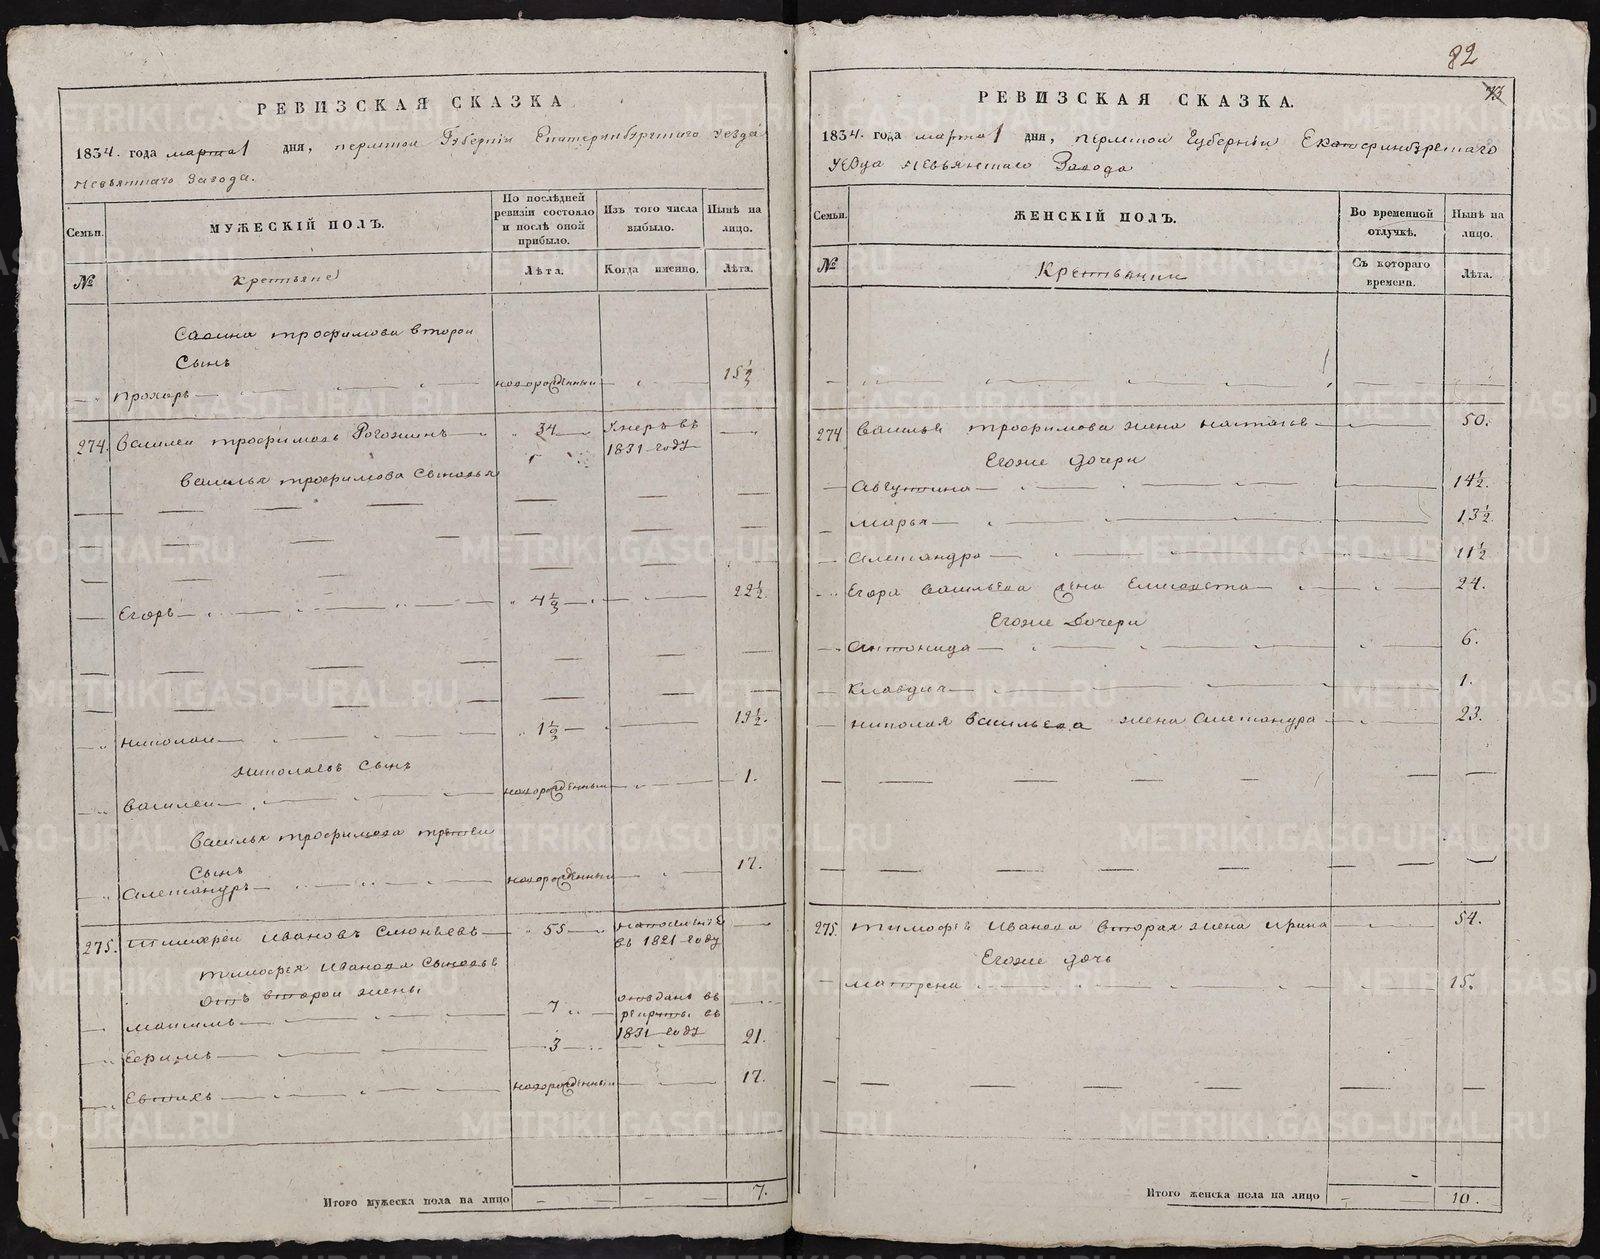 РЕВИЗСКАЯ СКАЗКА
1834. года марта 1 дня, пермской Губернии Екатеринбургскаго уезда
Невьянскаго Завода.
Семьи.
МУЖЕСКІЙ ПОЛЪ.
По послѣдней ревизіи состояло и послѣ оной прибыло.
Изъ того числа выбыло.
Нынѣ на лицо.
№
Крестьяне
Лѣта.
Когда именно.
Лѣта.
Савина трофимова второй
Сынъ
Прохоръ новорожденный 15½
274. Василеи трофимовъ Рогожинъ 34 Умеръ въ
1831 году
Василья трофимова Сыновья
Егоръ 4½ 22½.
Николаи 1½ 19½.
Николаевъ Сынъ
Василеи новорожденный 1.
Василья трофимова третеи
Сынъ
Александръ новорожденный 17.
275. Тимофеи Ивановъ 55 на поселение
въ 1821 году
тимофея Иванова Сыновья
отъ второи жены
Максимъ 7 отданъ въ
рекруты въ
1831 году
Ефимъ 3 21.
Евтихъ новорожденный 17.
Итого мужеска пола на лицо 7.
82
РЕВИЗСКАЯ СКАЗКА.
1834. года марта 1 дня, пермской Губернии Екатеринбургскаго
уезда Невьянскаго Завода
Семьи.
ЖЕНСКІЙ ПОЛЪ.
Во временной отлучкѣ.
Нынѣ на лицо.
№
Крестьянки
Съ котораго времени.
Лѣта.
274 Василья трофимова жена настасья 50.
Егоже дочери
Августина 14½.
Марья 13½
Александра 11½
Егора васильева жена Елисавета 24.
Егоже Дочери
Антонида 6.
Клавдия 1.
Николая васильева жена Александра 23.
275. Тимофея Иванова вторая жена Ирина 54.
Егоже дочь
Матрена 15.
Итого женска пола на лицо 10.
METRIKI.GASO-URAL.RU